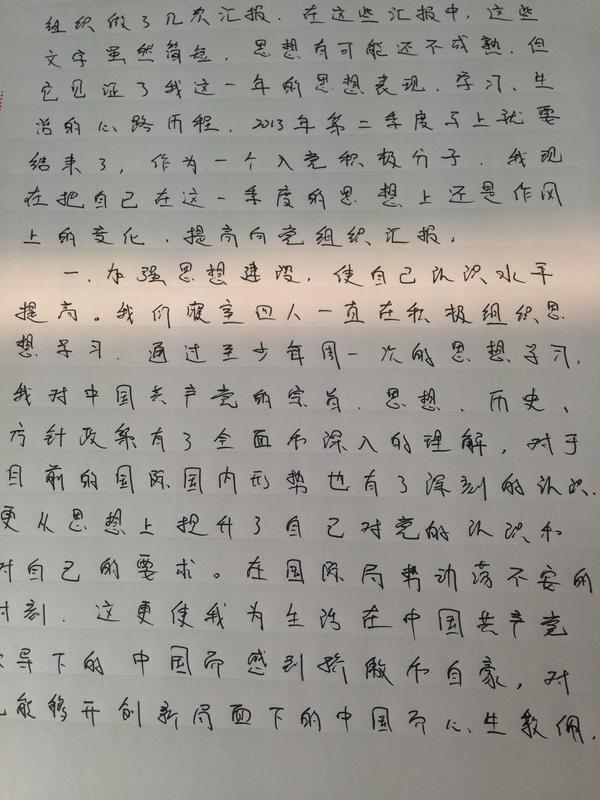 组织做了几次汇报.在这些汇报中,这些
文字虽然简短,思想有可能还不成熟.但
它见证了我这一年的思想表现、学习、生
活的心路历程.2013年第二季度马上就要
结束了,作为一个入党积极分子.我现
在把自己在这一季度的思想上还是作风
上的变化、提高向党组织汇报,
一.加强思想建设,使自己认识水平
提高。我们寝室四人一直在积极组织思
想学习.通过至少每周一次的思想学习,
我对中国共产党的宗旨、思想、历史、
方针政策有了全面而深入的理解,对于
目前的国际国内形势也有了深刻的认识.
更从思想上提升了自己对党的认识和
对自己的要求。在国际局势动荡不安的
时刻.这更使我为生活在中国共产党
领导下的中国而感到骄傲而自豪,对
能够开创新局面下的中国而心生敬佩.